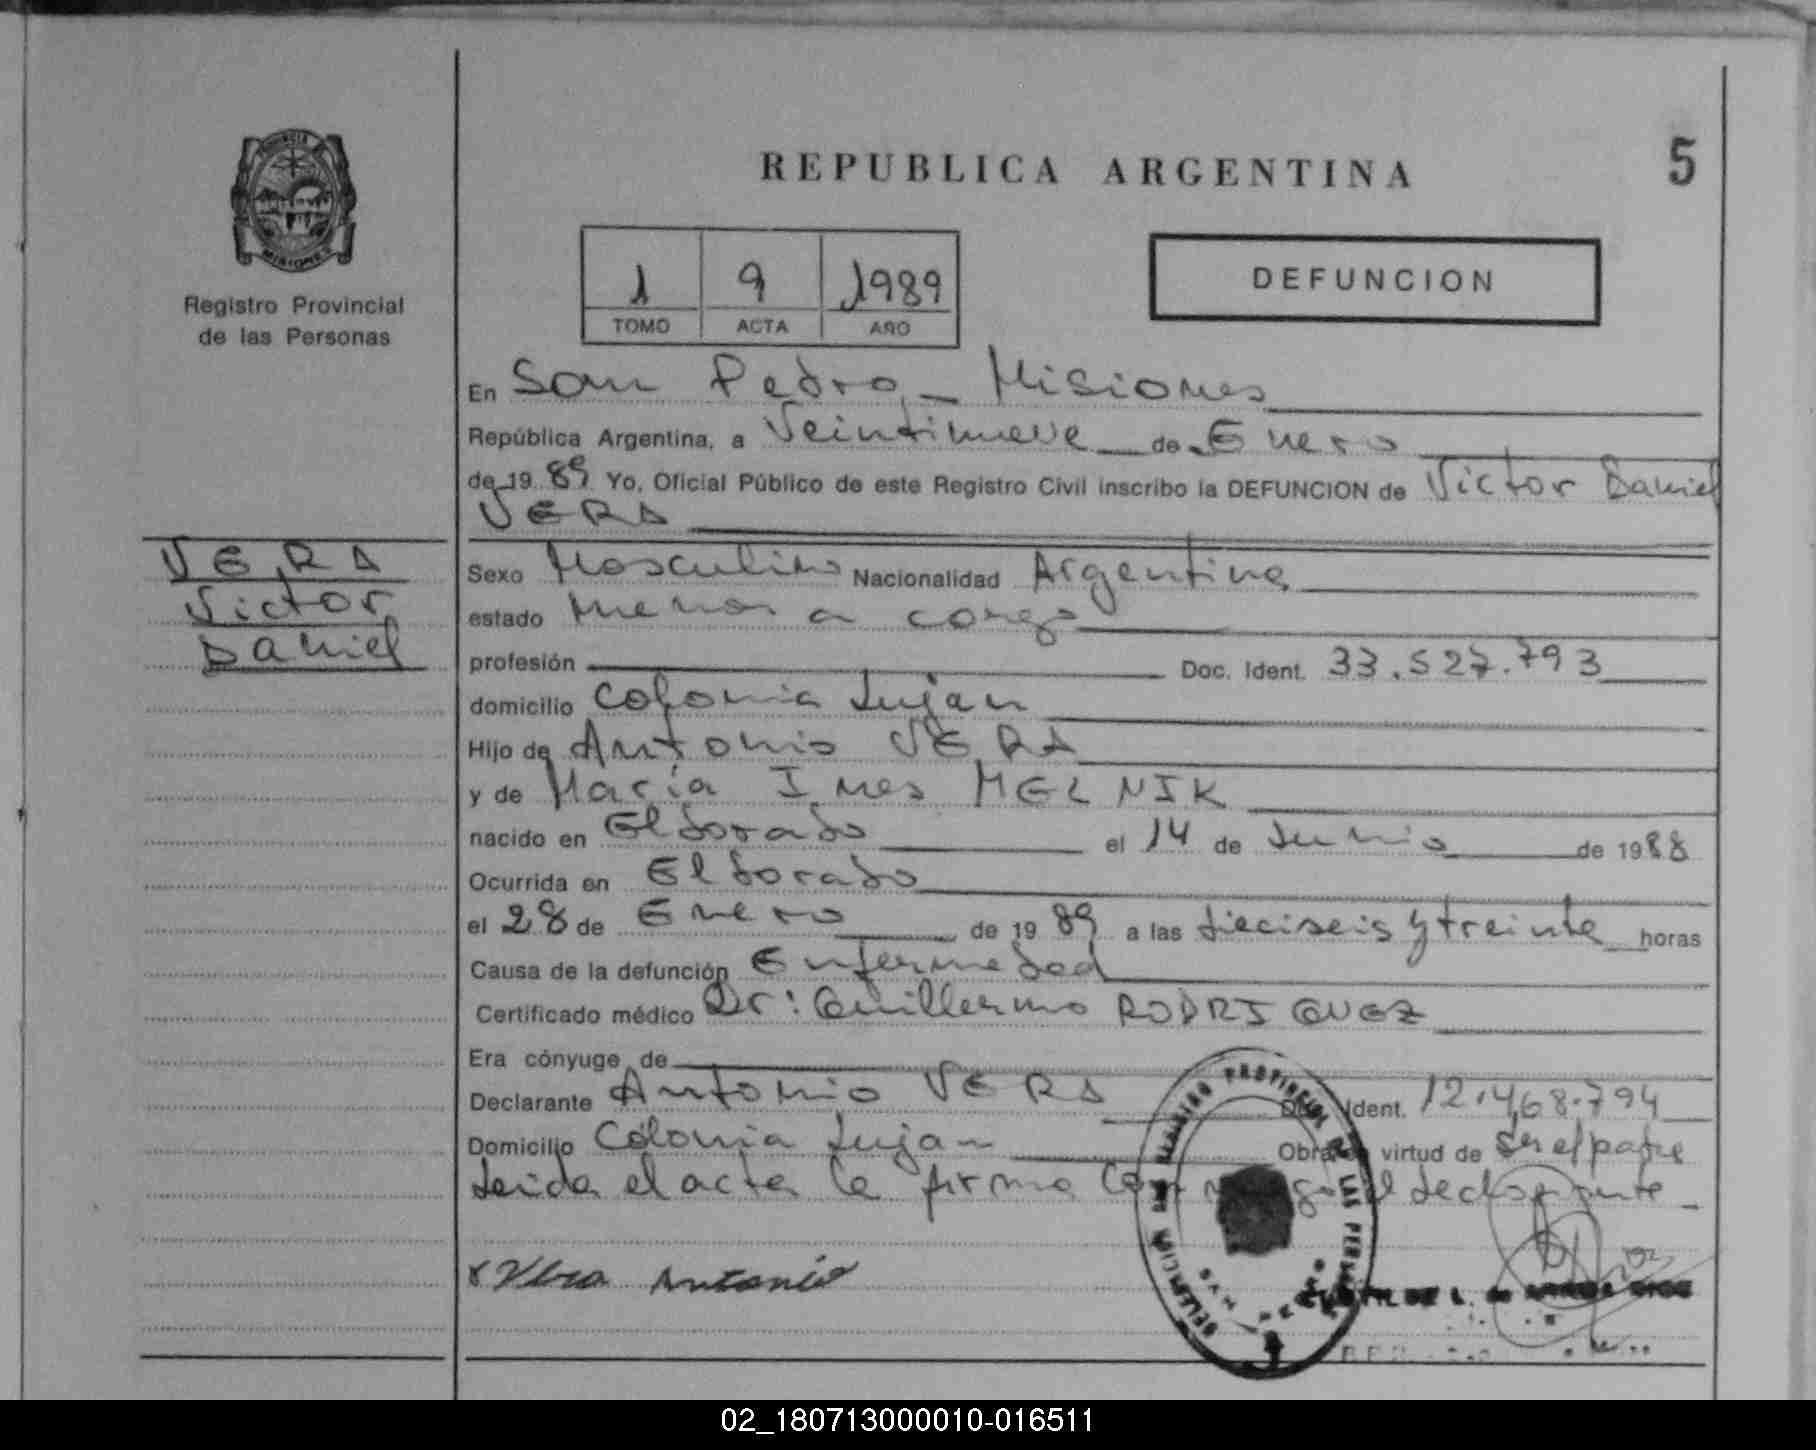 PROVINCIA DE
MISIONES
Registro Provincial
de las Personas
REPUBLICA ARGENTINA
5
1 9 1989
TOMO ACTA AÑO
DEFUNCION
En San Pedro - Misiones
República Argentina, a Veintinueve de Enero
de 19 89 Yo, Oficial Público de este Registro Civil inscribo la DEFUNCION de Victor Daniel
VERA
VERA
Victor
Daniel
Sexo Masculino Nacionalidad Argentina
estado menor a cargo
profesión Doc. Ident. 33.527.793
domicilio Colonia Lujan
Hijo de Antonio VERA
y de María Ines MELNIK
nacido en Eldorado el 14 de Junio de 1988
Ocurrida en Eldorado
el 28 de Enero de 19 89 a las dieciseis y treinta horas
Causa de la defunción Enfermedad
Certificado médico Dr: Guillermo RODRIGUEZ
Era cónyuge de
Declarante Antonio VERA Doc. Ident. 12.468.794
Domicilio Colonia Lujan Obra en virtud de Ser el padre
Leida el acta la firma Conmigo el declarante
x Vera Antonio
DELEGACION DEL REGISTRO PROVINCIAL DE LAS PERSONAS
02_180713000010-016511